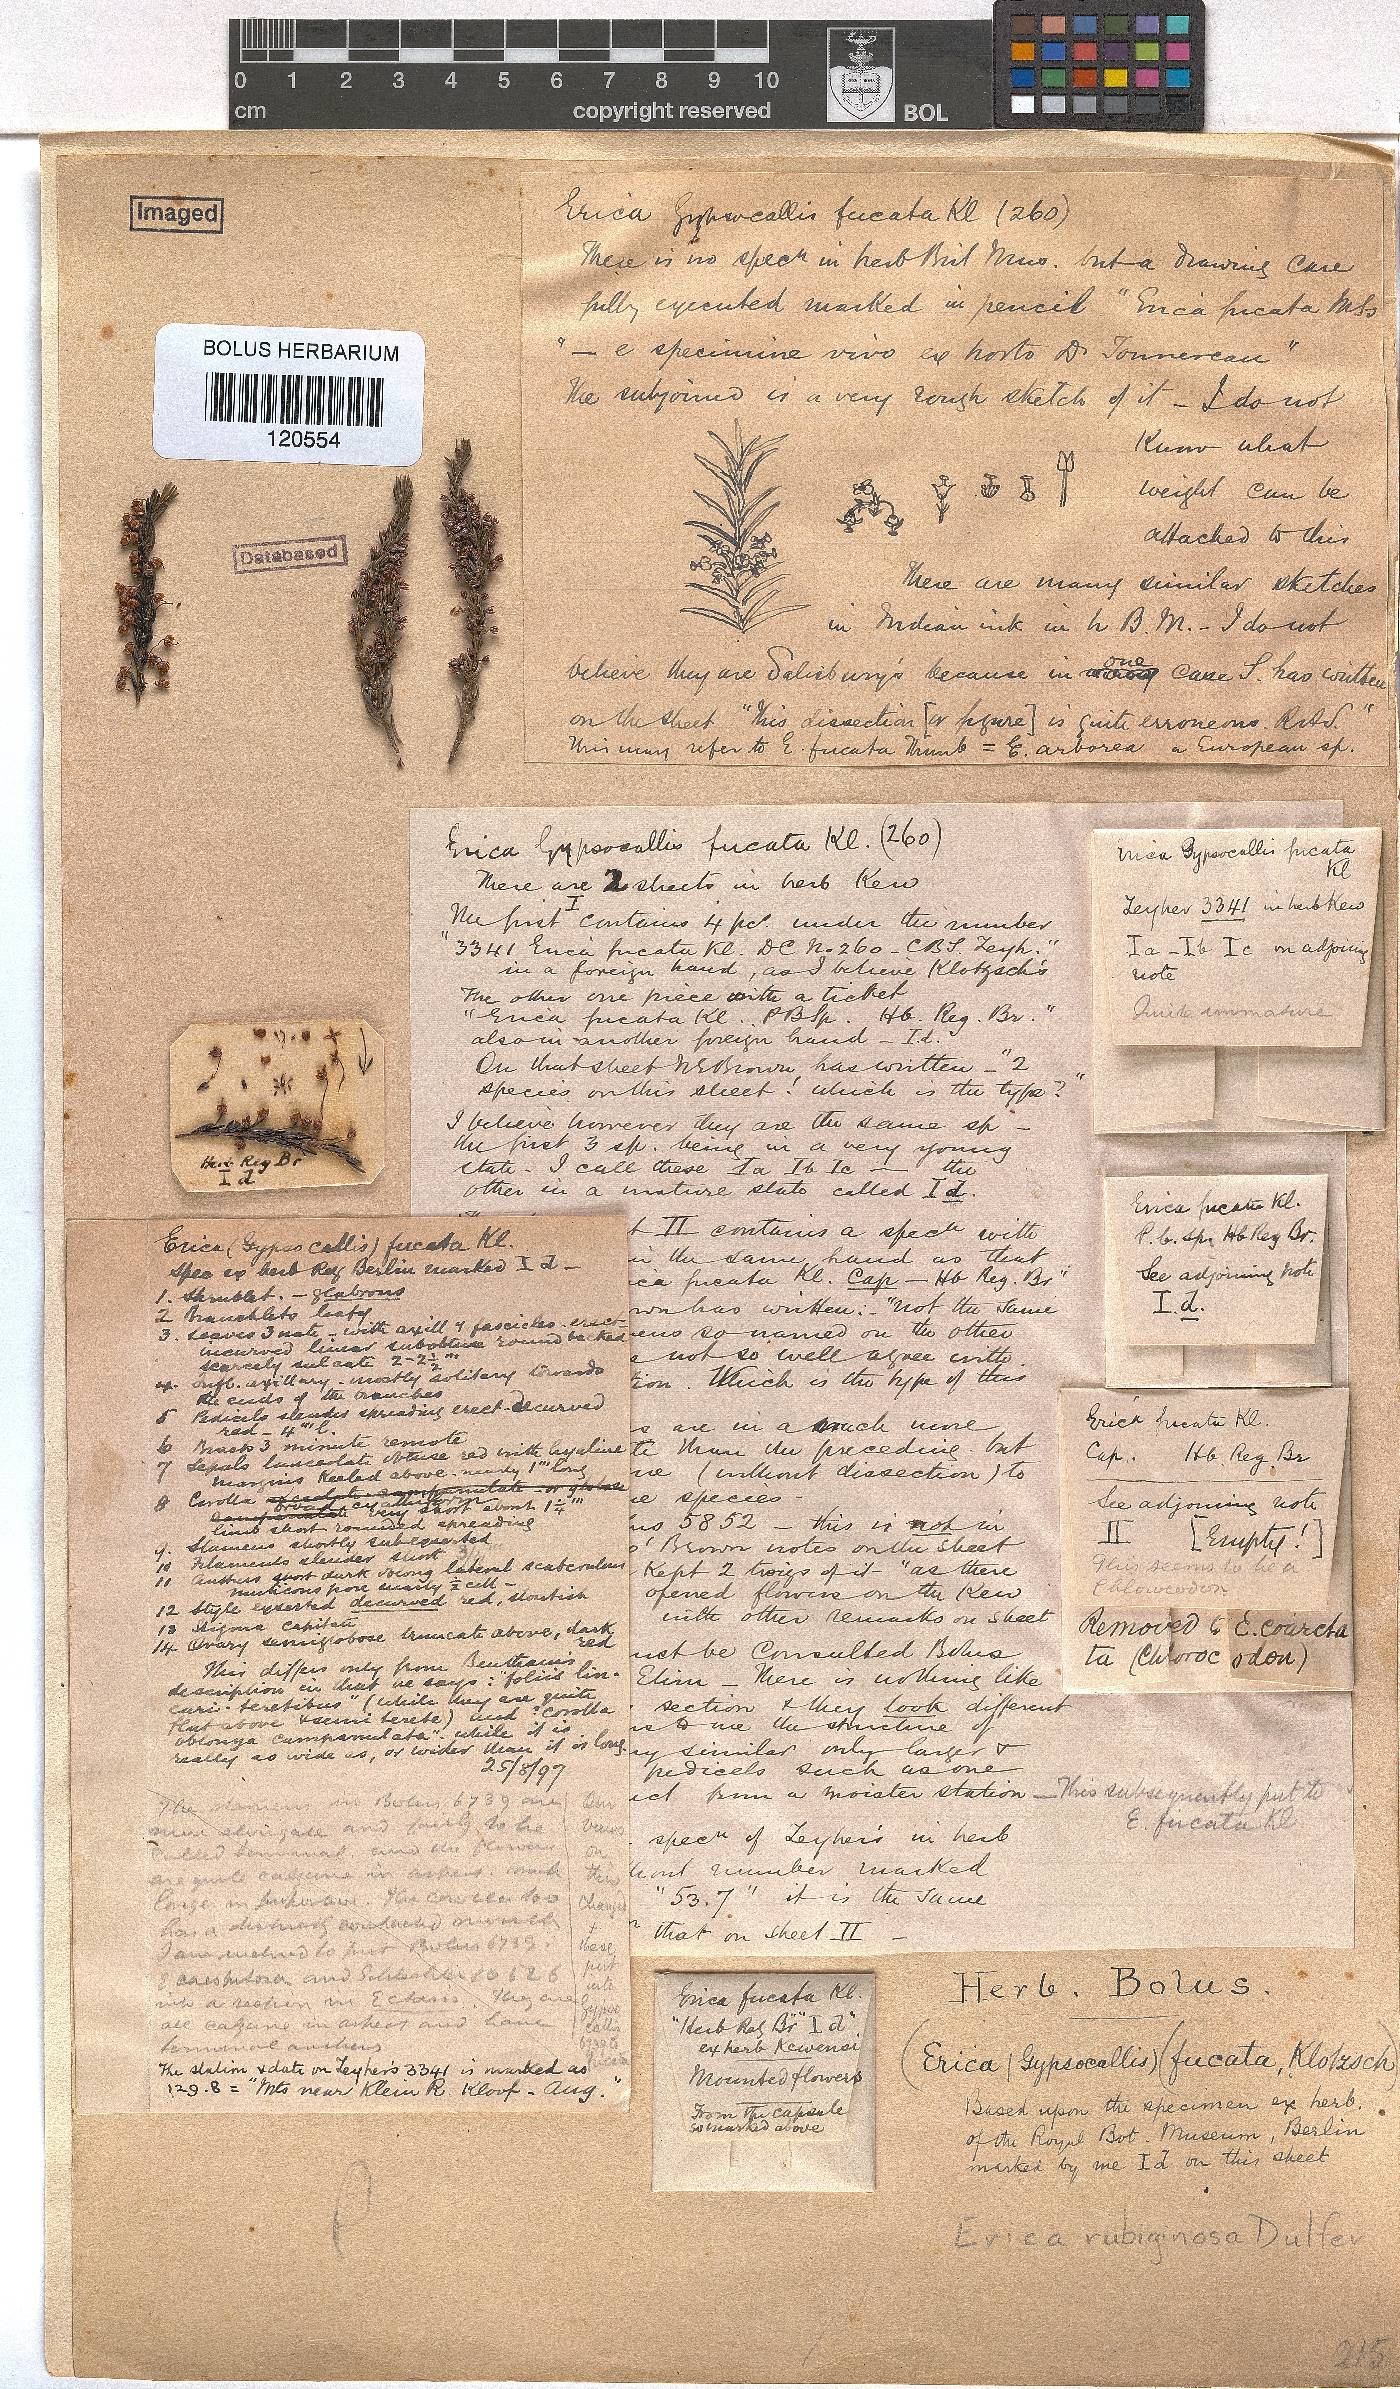 0 1 2 3 4 5 6 7 8 9 10
cm copyright reserved BOL
Imaged
BOLUS HERBARIUM
120554
Databased
Erica Gypsocallis fucata Kl (260)
There is no specn in herb Brit Mus. but a drawing care
fully executed marked in pencil "Erica fucata Mss
"— e specimine vivo ex horto Dr Tonnereau"
The subjoined is a very rough sketch of it — I do not
Know what
weight can be
attached to this
There are many similar sketches
in Indian ink in h B.M. — I do not
believe they are Salisbury's because in one case S. has written
on the sheet "This dissection [or figure] is quite erroneous. RAS."
This may refer to E. fucata Thunb = E. arborea a European sp.
Erica Gypsocallis fucata Kl. (260)
There are 2 sheets in herb Kew
The first I contains 4 pcs. under the number
"3341 Erica fucata Kl. DC No 260 — CBS. Zeyh."
in a foreign hand, as I believe Klotzsch's
The other one piece with a ticket
"Erica fucata Kl. PBSp. Hb. Reg. Br."
also in another foreign hand — Id.
On that sheet NEBrown has written — "2
species on this sheet! which is the type?"
I believe however they are the same sp —
the first 3 sp. being in a very young
state. I call these Ia Ib Ic — the
other in a mature state called Id.
t II contains a specn with
in the same hand as that
ca fucata Kl. Cap — Hb Reg. Br"
wn has written: — "not the same
ens so named on the other
not so well agree with
tion. Which is the type of this
s are in a much more
te than the preceding but
me (without dissection) to
e species —
us 5852 — this is not in
! Brown notes on the sheet
Kept 2 twigs of it "as there
opened flowers on the Kew
with other remarks on sheet
ust be Consulted Bolus
Elim — There is nothing like
section & they look different
ns to me the structure of
ry similar only larger &
pedicels such as one
ect from a moister station — This subsequently put to
E. fucata Kl
specn of Zeyher's in herb
hout number marked
"53.7" it is the same
that on sheet II —
Erica Gypsocallis fucata
Kl
Zeyher 3341 in herb Kew
Ia – Ib Ic on adjoining
note
Quite immature
Erica fucata Kl.
P. b. sp. Hb Reg Br.
See adjoining note
I d.
Erica fucata Kl.
Cap. Hb. Reg Br
See adjoining note
II [Empty!]
This seems to be a
Chlorocodon
Removed to E. coarcta
ta (Chlorocodon)
Herb. Reg Br
I d
Erica (Gypsocallis) fucata Kl.
Spec ex herb Reg Berlin marked I d —
1. Shrublet. — glabrous
2 Branchlets leafy
3. Leaves 3 nate — with axilly fascicles. erect-
incurved linear subobtuse round backed
scarcely sulcate 2–2½'''
4. Infl. axillary. mostly solitary towards
the ends of the branches
5 Pedicels slender spreading erect-decurved
red — 4''' l.
6 Bracts 3 minute remote
7 Sepals lanceolate obtuse red with hyaline
margins keeled above. nearly 1''' long
8 Corolla broad cyathiform
very short about 1¼'''
limb short rounded spreading
9. Stamens shortly subexserted
10 Filaments slender short
11 Anthers short dark oblong lateral scaberulous
muticous pore nearly ½ cell —
12 Style exserted decurved red, stoutish
13 Stigma capitate
14 Ovary semiglobose truncate above, dark
red
This differs only from Bentham's
description in that he says: "foliis lin-
eari-teretibus" (while they are quite
flat above & semi terete) and "corolla
oblonga campanulata" while it is
really as wide as, or wider than it is long.
25/8/97
The stamens in Bolus 6739 are
are quite calycine in aspect.
I am inclined to put Bolus 6739
E caespitosa and Schlechter 10626
all calycine in aspect and have
terminal anthers
The station & date on Zeyher's 3341 is marked as
129.8 = "Mts near Klein R. Kloof — Aug."
Erica fucata Kl.
"Herb Reg Br" "I d"
ex herb Kewensi
Mounted flowers
From the capsule
so marked above
Herb. Bolus.
(Erica (Gypsocallis) (fucata, Klotzsch)
Based upon the specimen ex herb.
of the Royal Bot. Museum, Berlin
marked by me Id on this sheet
Erica rubiginosa Dulfer
215